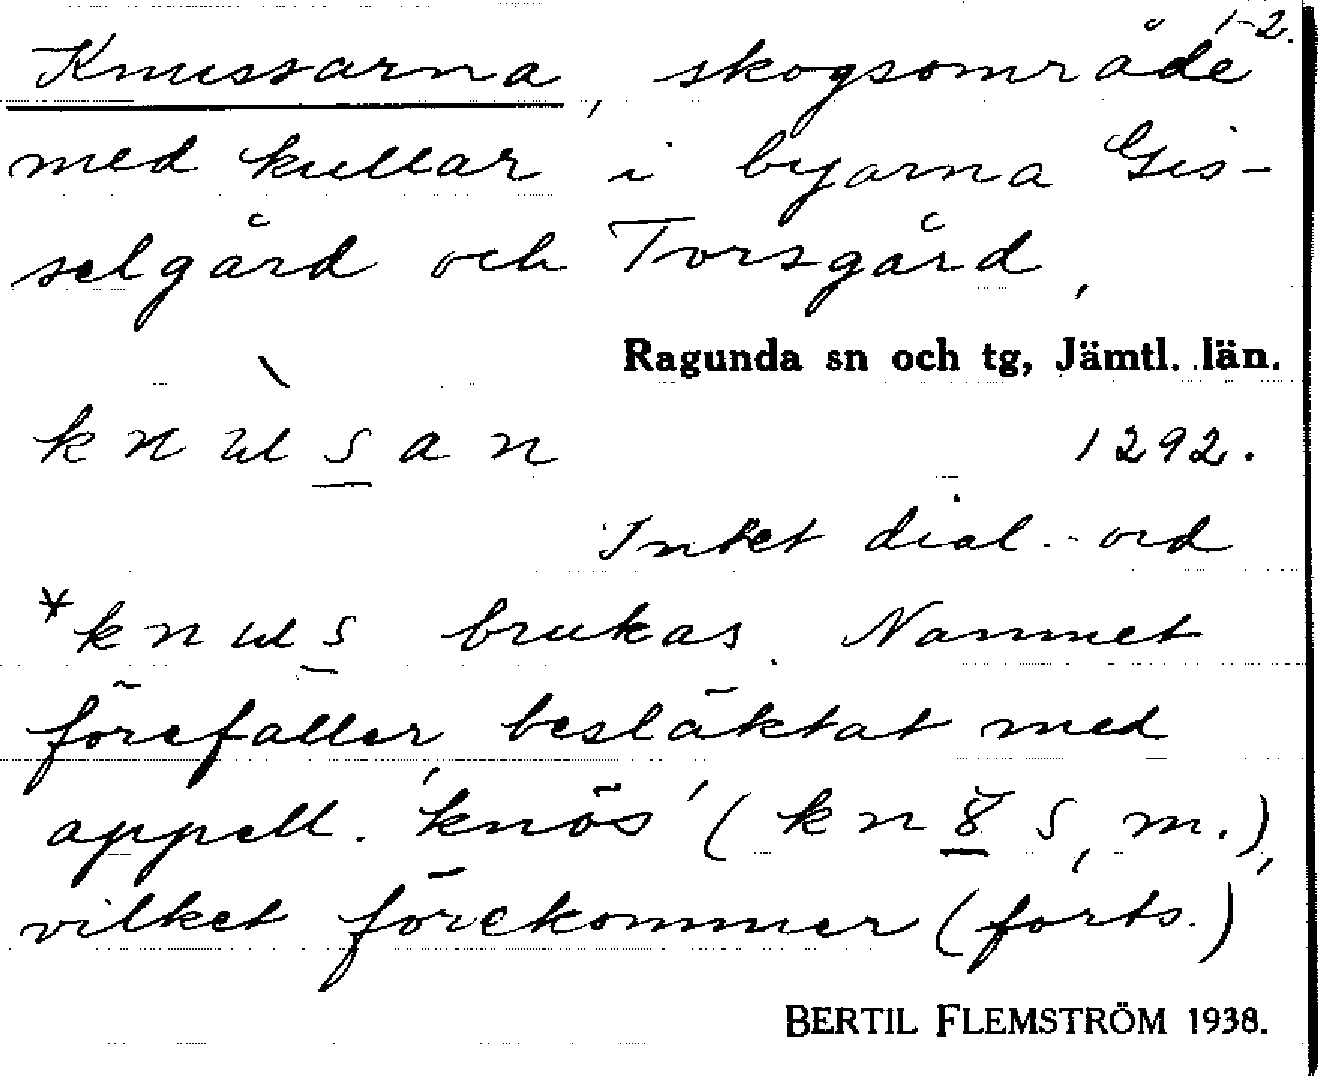 1-2.
Knussarna, skogsområde
med kullar i byarna Gis-
selgård och Torsgård,
Ragunda sn och tg, Jämtl. län.
knusan 1292.
Intet dial. ord
*knus brukas. Namnet
förefaller besläktat med
appell. 'knös' (kn8s, m.),
vilket förekommer (forts.)
BERTIL FLEMSTRÖM 1938.